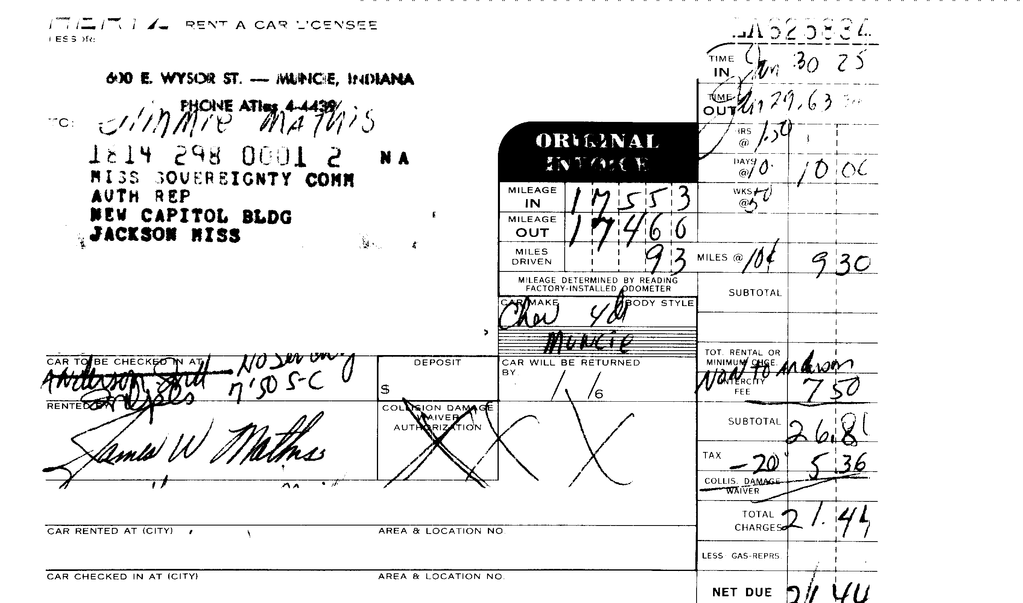 HERTZ RENT A CAR LICENSEE
LESSOR:
600 E. WYSOR ST. — MUNCIE, INDIANA
PHONE ATlas 4-4439
TO: Jimmie Mathis
1814 298 0001 2 NA
MISS SOVEREIGNTY COMM
AUTH REP
NEW CAPITOL BLDG
JACKSON MISS
ORIGINAL
INVOICE
MILEAGE IN 17553
MILEAGE OUT 17466
MILES DRIVEN 93
MILEAGE DETERMINED BY READING
FACTORY-INSTALLED ODOMETER
CAR MAKE BODY STYLE
Chev 4dr
MUNCIE
CAR TO BE CHECKED IN AT
Anderson
7.50 S-C
DEPOSIT
$
CAR WILL BE RETURNED
BY
RENTED BY
James W Mathis
COLLISION DAMAGE
WAIVER
AUTHORIZATION
CAR RENTED AT (CITY) AREA & LOCATION NO.
CAR CHECKED IN AT (CITY) AREA & LOCATION NO.
TIME IN 30 25
TIME OUT 29, 63
HRS @ 1.50
DAYS @ 10. 10 00
WKS @ 50
MILES @ 10¢ 9 30
SUBTOTAL
TOT. RENTAL OR
MINIMUM CHGE
INTERCITY FEE 7 50
SUBTOTAL 26.81
TAX -20 5 36
COLLIS. DAMAGE
WAIVER
TOTAL CHARGES 21.44
LESS GAS-REPRS.
NET DUE 21 44